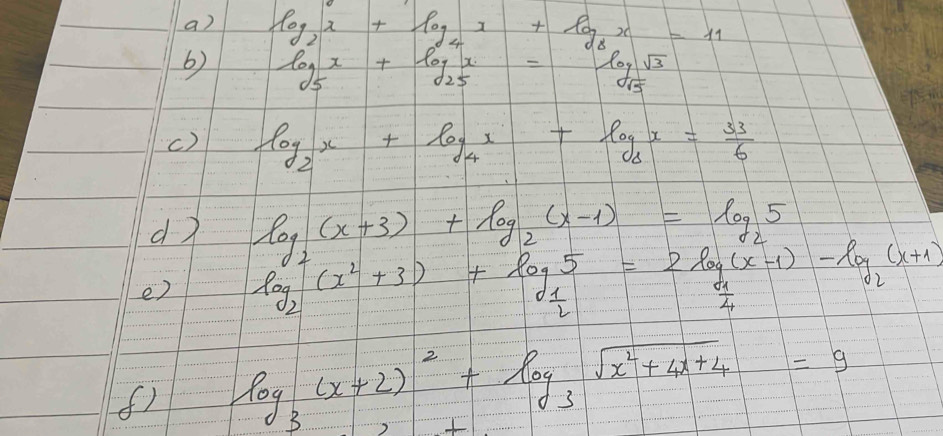 a) log₂ x + log₄ x + log₈ x = 11
b) log₅ x + log₂₅ x = log_√5 √3
c) log₂ x + log₄ x + log₈ x = 33/6
d) log₂ (x+3) + log₂ (x-1) = log₂ 5
e) log₂ (x²+3) + log_1/2 5 = 2 log_1/4 (x-1) - log₂ (x+1)
f) log₃ (x+2)² + log₃ √(x²+4x+4) = 9